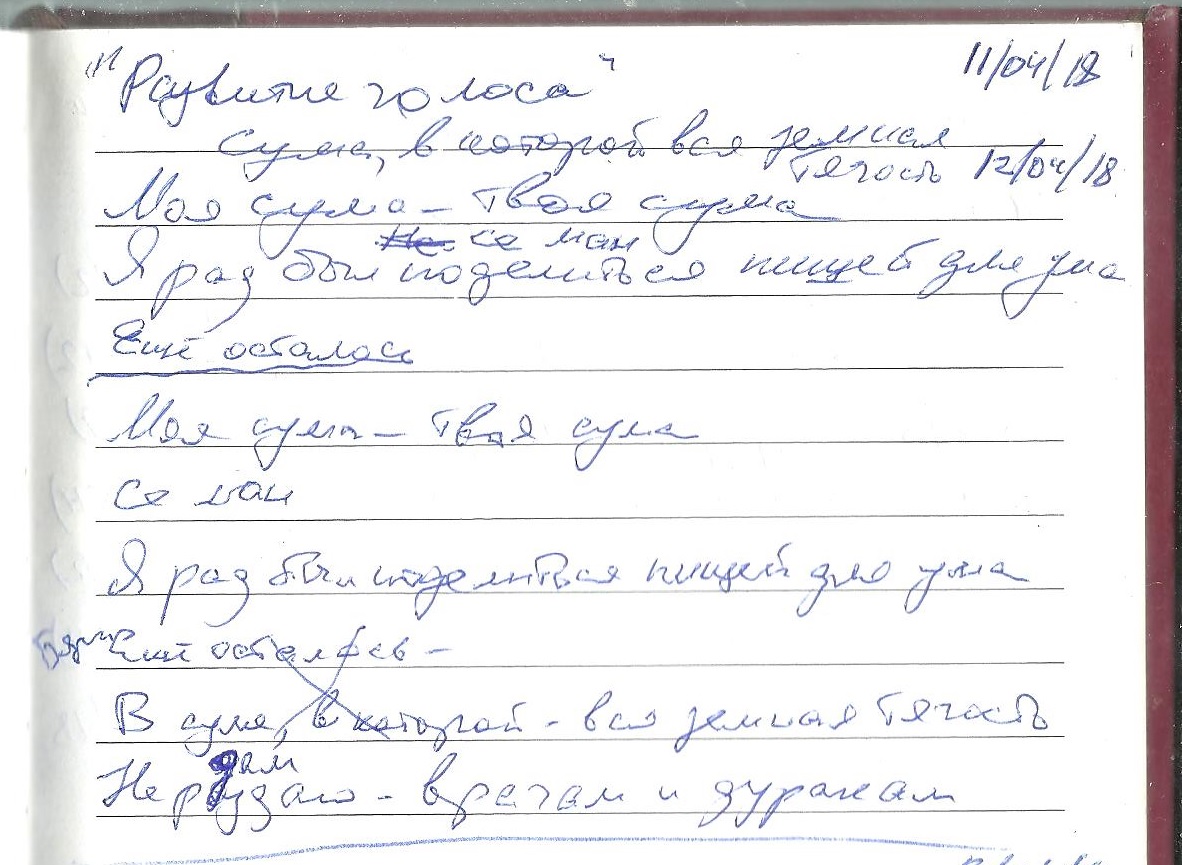 "Развитие голоса" 11/04/18
Сума, в которой вся земная
тягость 12/04/18
Моя сума – твоя сума
се ман
Я рад был поделиться пищей для ума
Ещё осталось
Моя сума – твоя сума
Се ман
Я рад был поделиться пищей для ума
Ещё осталось –
В суме, в которой – вся земная тягость
дам
Не раздаю – врагам и дуракам